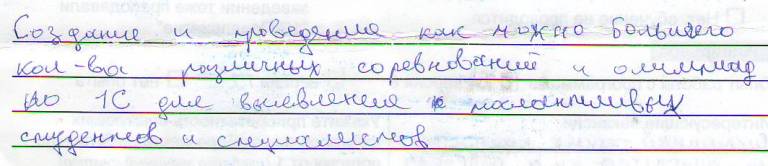 Создание и проведение как можно большего
кол-ва различных соревнований и олимпиад
по 1С для выявления талантливых
студентов и специалистов